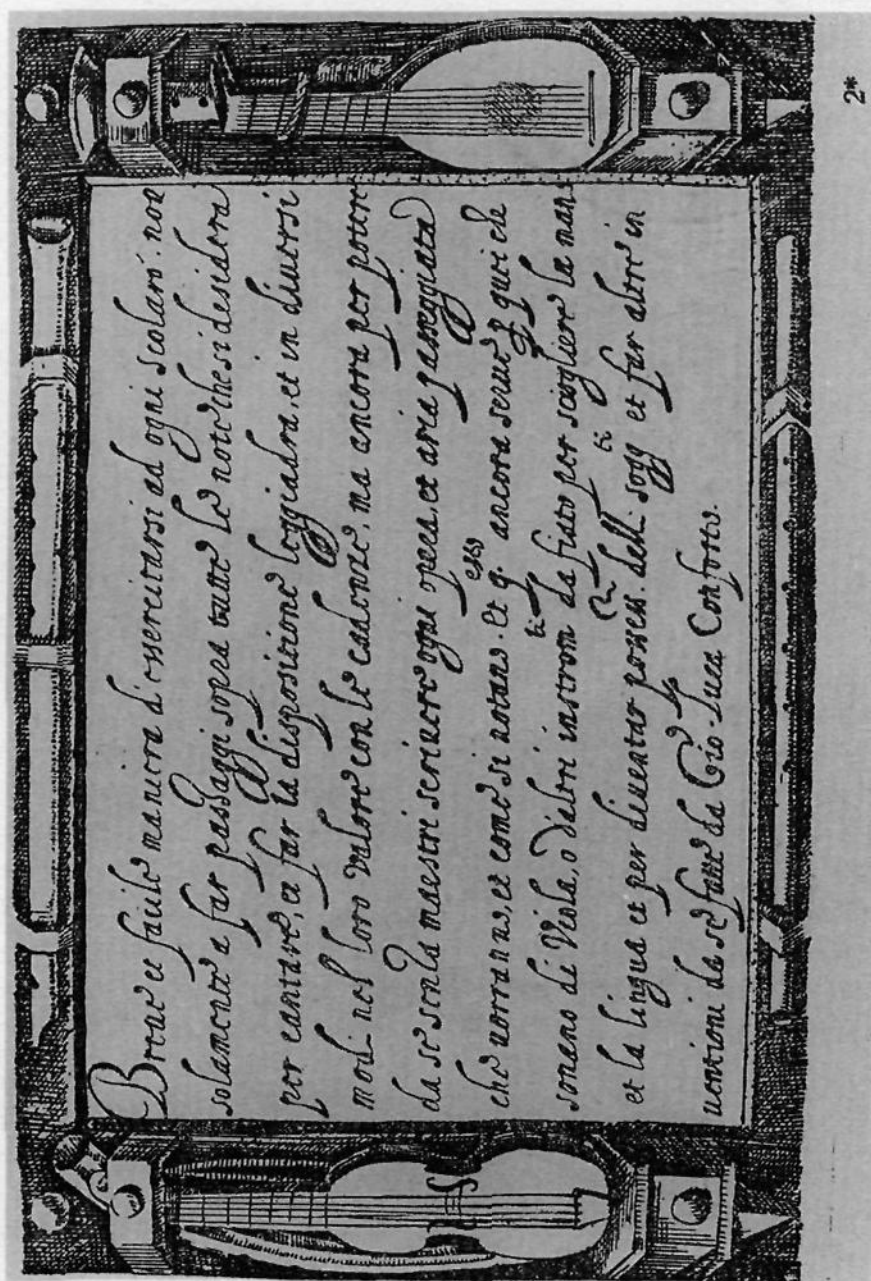 Breue et facile maniera d'essercitarsi ad ogni scolaro, non
solamente a far passaggi sopra tutte le note che si desidera
per cantare, et a far la dispositione leggiadra, et in diuersi
modi nel loro valore con le cadenze, ma ancora per potere
da se senza maestri scriuere ogni opera, et aria passeggiata
che vorranno, et come si notano. Et q.sto ancora serue p quei che
sonano di Viola, o d'altri instrom.ti da fiato per sciogliere la mano
et la lingua et per diuentar posses.re delli sogg.ti et far altre in
uentioni da se fatte da Gio. Luca Conforto.
2*